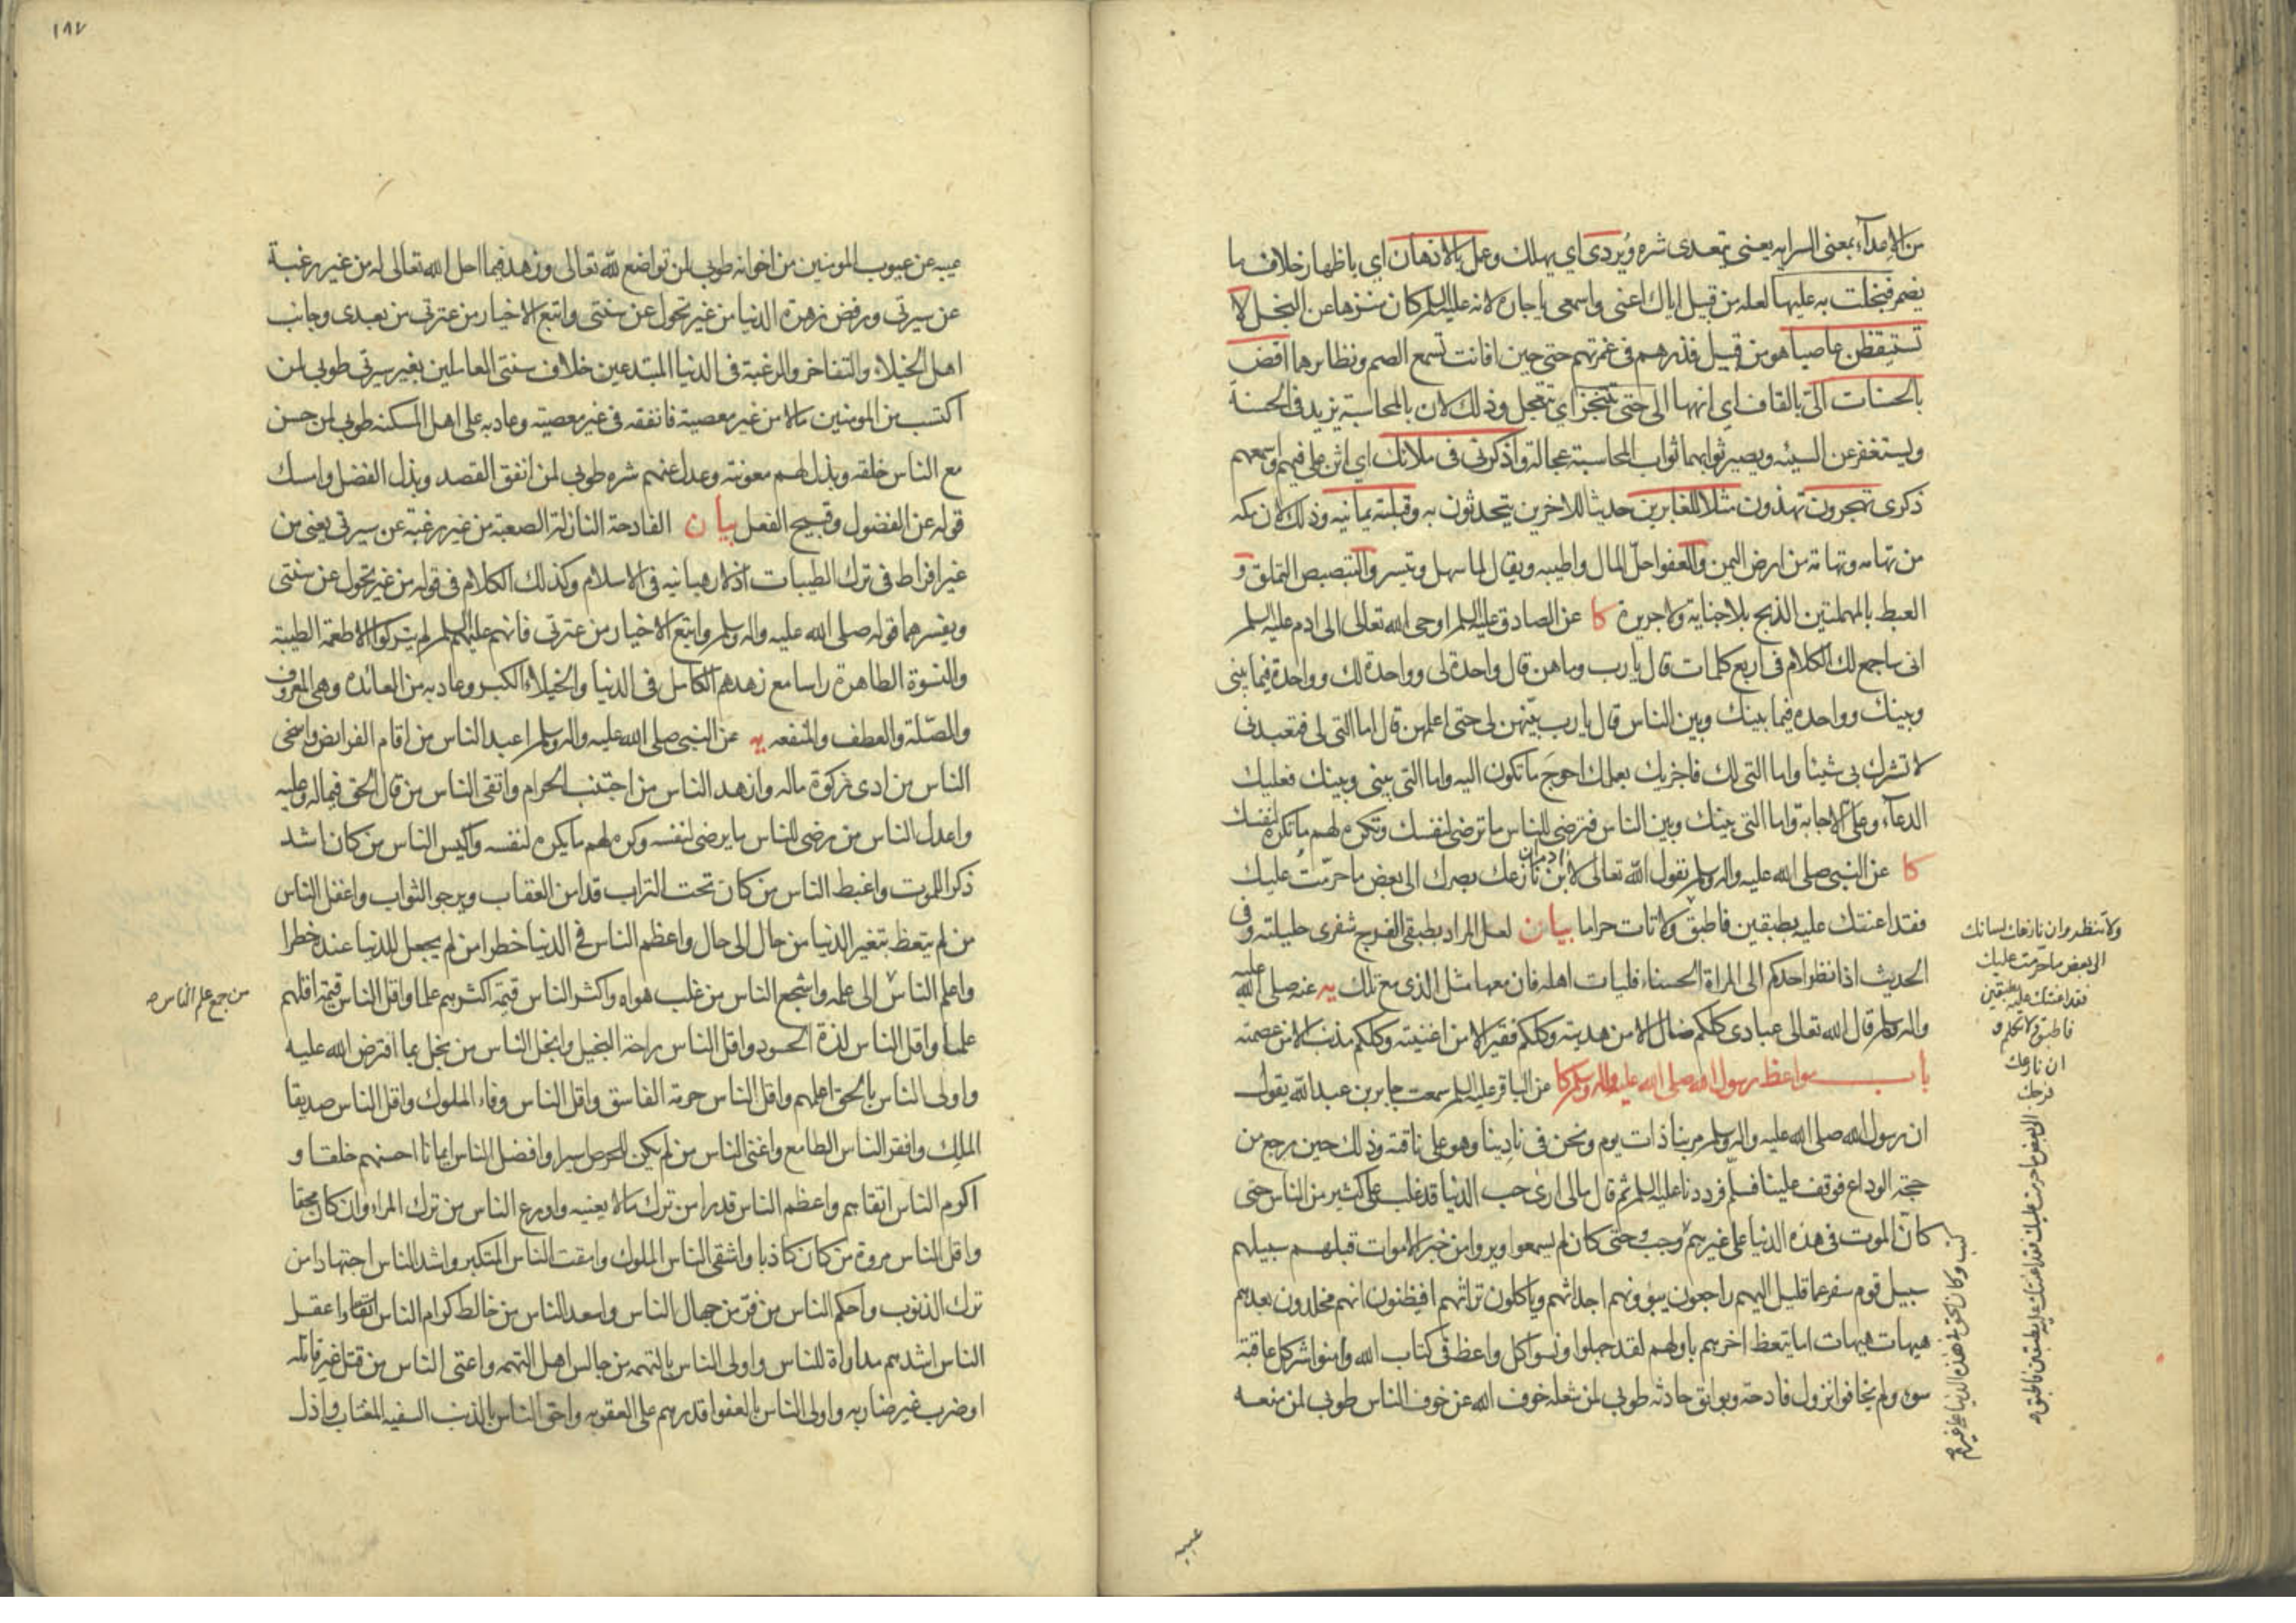 من الاعدآء بمعنى السرايه يعنى يتعدى شره ويردى اى يهلك وعمل بالادهان اى باظهار خلاف ما
يضمر فبخلت به عليها لعله من قبيل اياك اعنى واسمعى ياجاره لانه عليه السلم كان منزها عن البخل لا
تستيقظن عاصيا هو من قبيل فذرهم فى غمرتهم حتى حين افانت تسمع الصم ونظايرهما افض
بالحسنات الىّ بالقاف اى انهها الى حتى تتنجز اى تتعجل وذلك لان بالمحاسبة يزيد فى الحسنة
ويستغفر عن السيئه ويصير ثوابهما ثواب المحاسبة عجالة واذكرنى فى ملائك اى اثن على فيهم واسمعهم
ذكرى تهجرون تهذون مثلا للغابرين حديثا للاخرين يتحدثون به وقبلته يمانيه وذلك لان مكه
من تهامه وتهامة من ارض اليمن والعفو احلّ المال واطيبه ويقال لما سهل وتيسر والتبصبص التملق و
العبط بالمهملتين الذبح بلا جناية ولا جريرة كا عن الصادق عليه السلم اوحى الله تعالى الى ادم عليه السلم
انى ساجمع لك الكلام فى اربع كلمات قال يارب وما هن قال واحدة لى وواحدة لك وواحدة فيما بينى
وبينك وواحده فيما بينك وبين الناس قال يارب بيّنهن لى حتى اعلمهن قال اما التى لى فتعبدنى
لا تشرك بى شيئا واما التى لك فاجزيك بعملك احوجَ ما تكون اليه واما التى بينى وبينك فعليك
الدعآء وعلىّ الاجابة واما التى بينك وبين الناس فترضى للناس ما ترضى لنفسك وتكره لهم ما تكره لنفسك
كا عن النبى صلى الله عليه واله وسلم يقول الله تعالى لابن ادم ان نازعك بصرك الى بعض ما حرّمتُ عليك
فقد اعنتك عليه بطبقين فاطبق ولا تات حراما بيان لعل المراد بطبقى الفرج شفرى حليلته وفى
الحديث اذا نظر احدكم الى المراة الحسناء فليات اهله فان معها مثل الذى مع تلك يه عنه صلى الله عليه
واله وسلم قال الله تعالى عبادى كلكم ضال الا من هديته وكلكم فقير الا من اغنيته وكلكم مذنب الا من عصمته
باب مواعظ رسول الله صلى الله عليه واله وسلم كا عن الباقر عليه السلم سمعت جابر بن عبد الله يقول
ان رسول الله صلى الله عليه واله وسلم مر بنا ذات يوم ونحن فى نادينا وهو على ناقته وذلك حين رجع من
حجة الوداع فوقف علينا فسلّم فرددنا عليه السلم ثم قال مالى ارى حب الدنيا قد غلب على كثير من الناس حتى
كان الموت فى هذه الدنيا على غيرهم وجب وحتى كان لم يسمعوا ويروا من خبر الاموات قبلهم سبيلهم
سبيل قوم سفر عما قليل اليهم راجعون بيوتهم اجداثهم وياكلون تراثهم افيظنون انهم مخلدون بعدهم
هيهات هيهات اما يتعظ اخرهم باولهم لقد جهلوا ونسوا كل واعظ فى كتاب الله وامنوا شر كل عاقبة
سوء ولم يخافوا نزول فادحة وبوائق حادثه طوبى لمن شغله خوف الله عن خوف الناس طوبى لمن منعه
ولا تنظر وان نازعك لسانك
الى بعض ما حرّمت عليك
فقد اعنتك عليه بطبقين
فاطبق ولا تكلم و
ان نازعك
فرجك
الى بعض ما حرمت عليك فقد اعنتك عليه بطبقين فاطبق
كتب وكان الحق فى هذه الدنيا على غيرهم
عيبه
١٨٧
عيبه عن عيوب المومنين من اخوانه طوبى لمن تواضع لله تعالى وزهد فيما احل الله تعالى له من غير رغبة
عن سيرتى ورفض زهرة الدنيا من غير تحول عن سنتى واتبع الاخيار من عترتى من بعدى وجانب
اهل الخيلاء والتفاخر والرغبة فى الدنيا المبتدعين خلاف سنتى العاملين بغير سيرتى طوبى لمن
اكتسب من المومنين مالا من غير معصية فانفقه فى غير معصية وعاد به على اهل المسكنه طوبى لمن حسن
مع الناس خلقه وبذل لهم معونته وعدل عنهم شره طوبى لمن انفق القصد وبذل الفضل وامسك
قوله عن الفضول وقبيح الفعل بيان الفادحة النازلة الصعبة من غير رغبة عن سيرتى يعنى من
غير افراط فى ترك الطيبات اذ لا رهبانيه فى الاسلام وكذلك الكلام فى قوله من غير تحول عن سنتى
ويفسرهما قوله صلى الله عليه واله وسلم واتبع الاخيار من عترتى فانهم عليهم السلم لم يتركوا الاطعمة الطيبة
والنسوة الطاهرة راسا مع زهدهم الكامل فى الدنيا والخيلاء الكبر وعاد به من العائده وهى المعروف
والصّلة والعطف والمنفعه يه عن النبى صلى الله عليه واله وسلم اعبد الناس من اقام الفرايض واسخى
الناس من ادى زكوة ماله وازهد الناس من اجتنب الحرام واتقى الناس من قال الحق فيما له وعليه
واعدل الناس من رضى للناس ما يرضى لنفسه وكره لهم ما يكره لنفسه واكيس الناس من كان اشد
ذكرا للموت واغبط الناس من كان تحت التراب قد امن العقاب ويرجو الثواب واغفل الناس
من لم يتعظ بتغير الدنيا من حال الى حال واعظم الناس فى الدنيا خطرا من لم يجعل للدنيا عنده خطرا
واعلم الناس الى علمه واشجع الناس من غلب هواه واكثر الناس قيمة اكثرهم علما واقل الناس قيمة اقلهم
من جمع علم الناس
علما واقل الناس لذة الحسود واقل الناس راحة البخيل وابخل الناس من بخل بما افترض الله عليه
واولى الناس بالحق اعلمهم واقل الناس حرمة الفاسق واقل الناس وفاء الملوك واقل الناس صديقا
الملِك وافقر الناس الطامع واغنى الناس من لم يكن للحرص اسيرا وافضل الناس ايمانا احسنهم خلقا و
اكرم الناس اتقاهم واعظم الناس قدرا من ترك مالا يعنيه واورع الناس من ترك المراء وان كان محقا
واقل الناس مروة من كان كاذبا واشقى الناس الملوك وامقت الناس المتكبر واشد الناس اجتهادا من
ترك الذنوب واحكم الناس من فرّ من جهال الناس واسعد الناس من خالط كرام الناس واعقل
الناس اشدهم مداراة للناس واولى الناس بالتهمه من جالس اهل التهمه واعتى الناس من قتل غير قاتله
او ضرب غير ضاربه واولى الناس بالعفو اقدرهم على العقوبه واحق الناس بالذنب السفيه المغتاب واذل